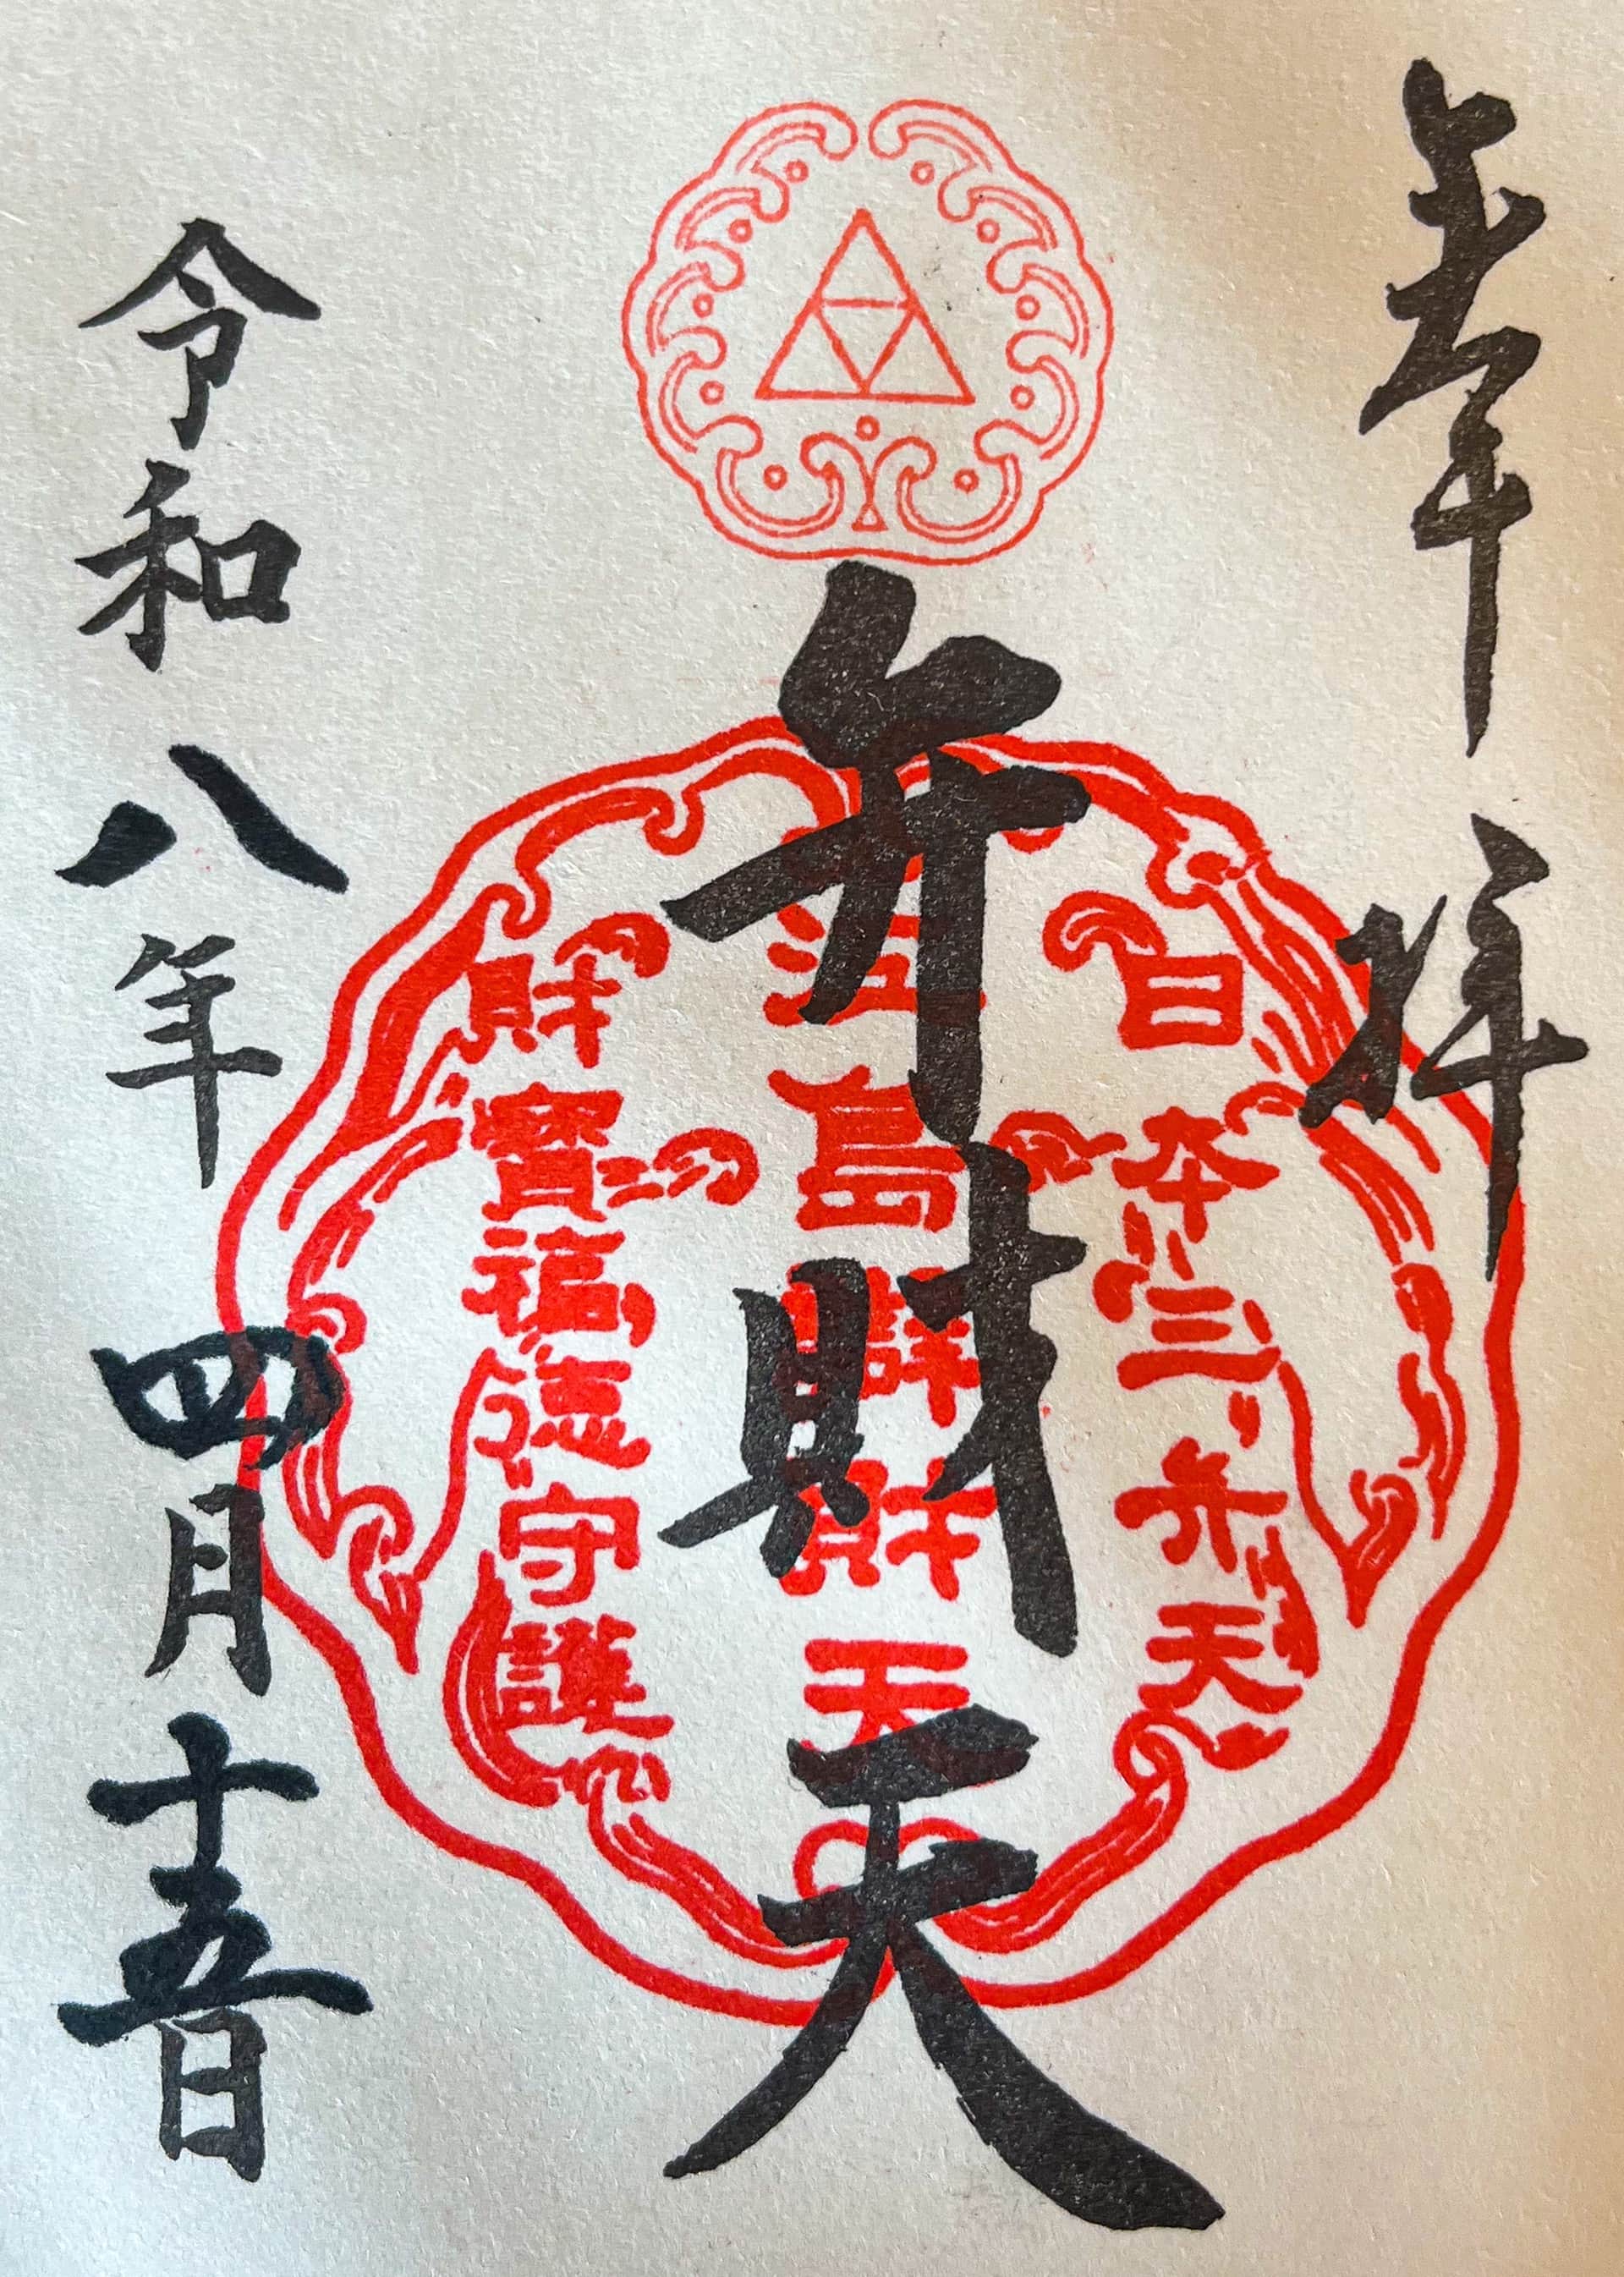 奉拝
日本三弁天
江島辨財天
財寶福徳守護
弁財天
令和八年四月十五日